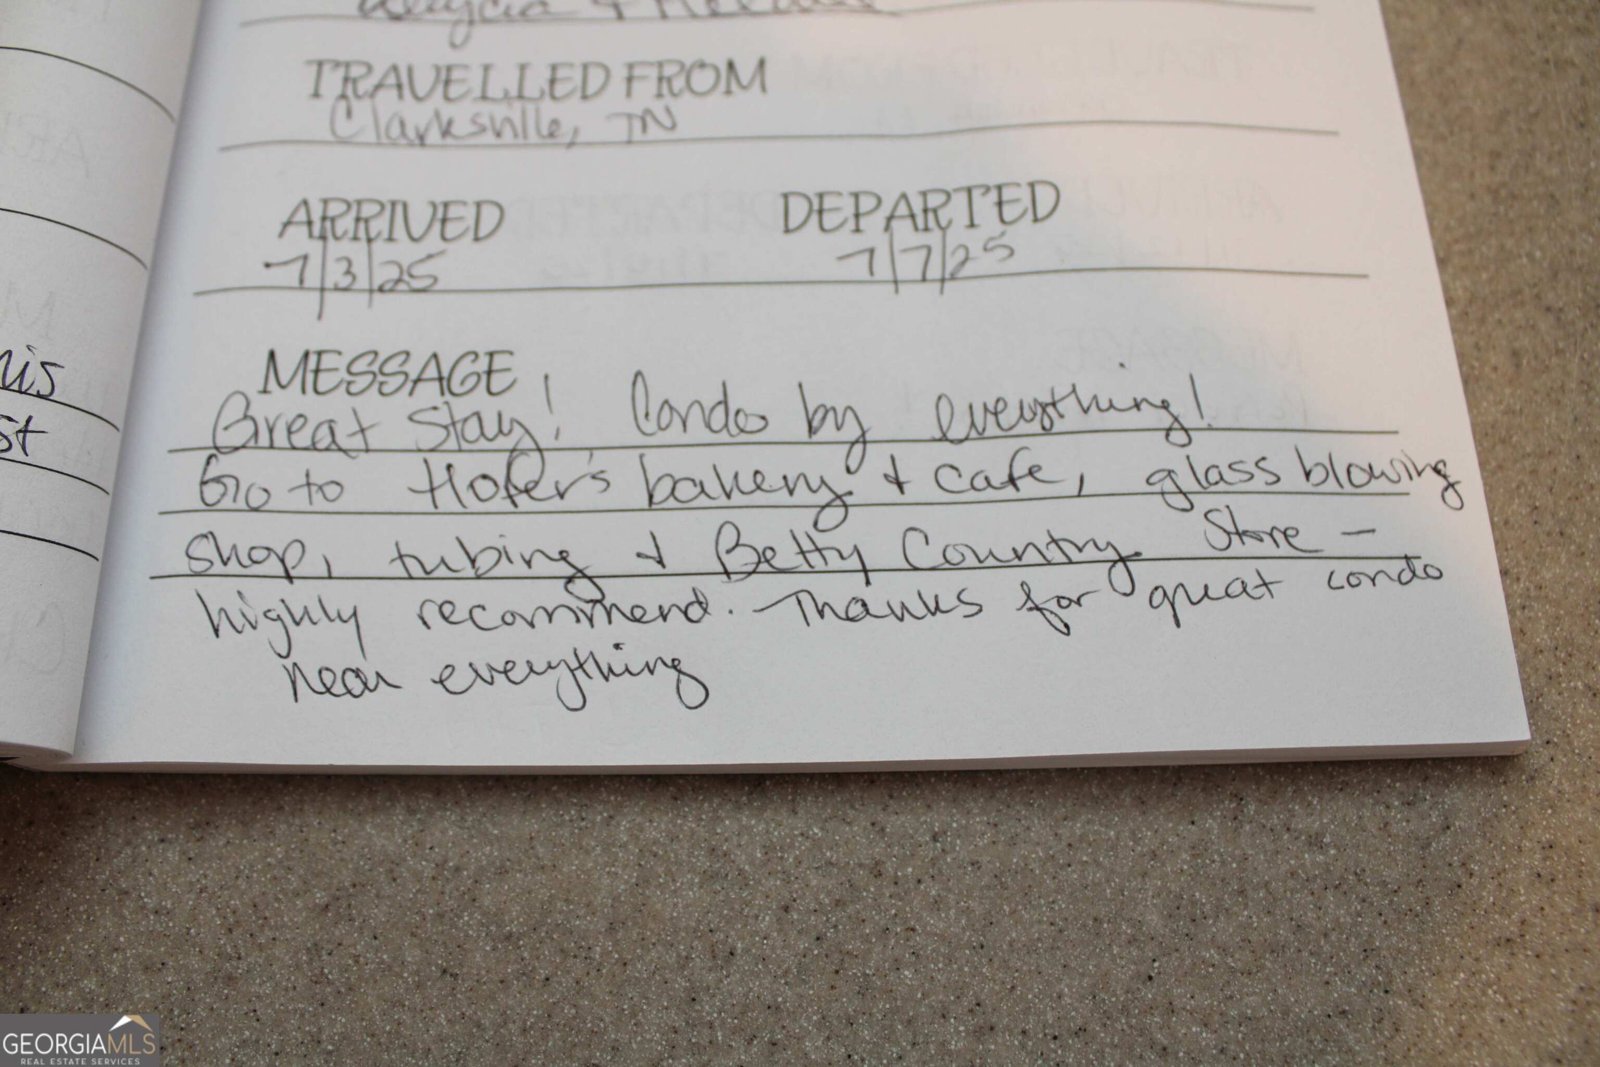 TRAVELLED FROM
Clarksville, TN
ARRIVED DEPARTED
7/3/25 7/7/25
MESSAGE
Great Stay! Condo by everything!
Go to Hofer's bakery & cafe, glass blowing
shop, tubing & Betty Country Store -
highly recommend. Thanks for great condo
near everything
is
st
GEORGIAMLS
REAL ESTATE SERVICES